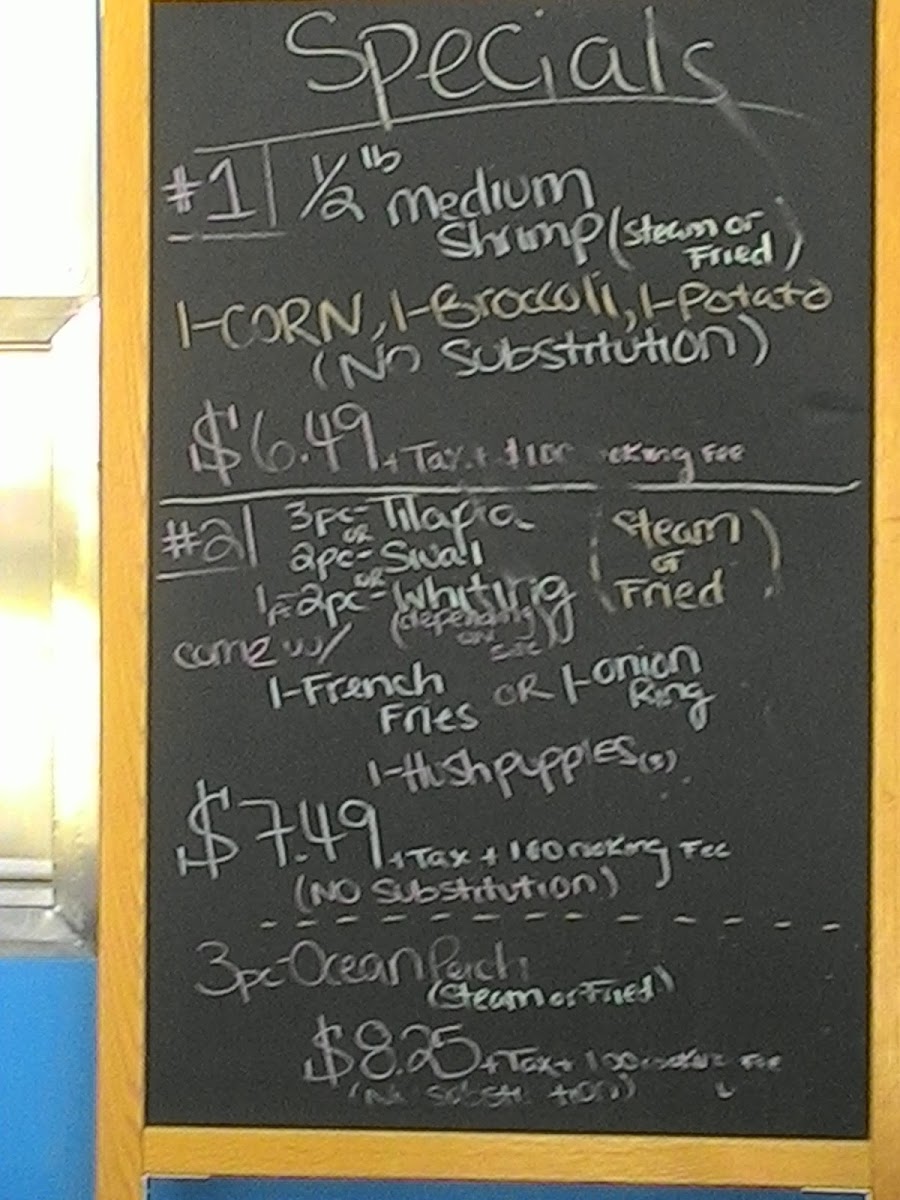 Specials
#1 1/2 lb Medium
Shrimp (Steam or
Fried)
1-CORN, 1-Broccoli, 1-Potato
(NO Substitution)
$6.49 + Tax + Fee
#2 3pc-Tilapia
OR
2pc-Swai
OR
1-2pc-Whiting
(depending
on
size)
(Steam
or
Fried)
come w/
1-French
Fries
OR 1-onion
Ring
1-Hushpuppies
$7.49 + Tax + Fee
(NO Substitution)
3pc-Ocean Perch
(Steam or Fried)
$8.25 + Tax + Fee